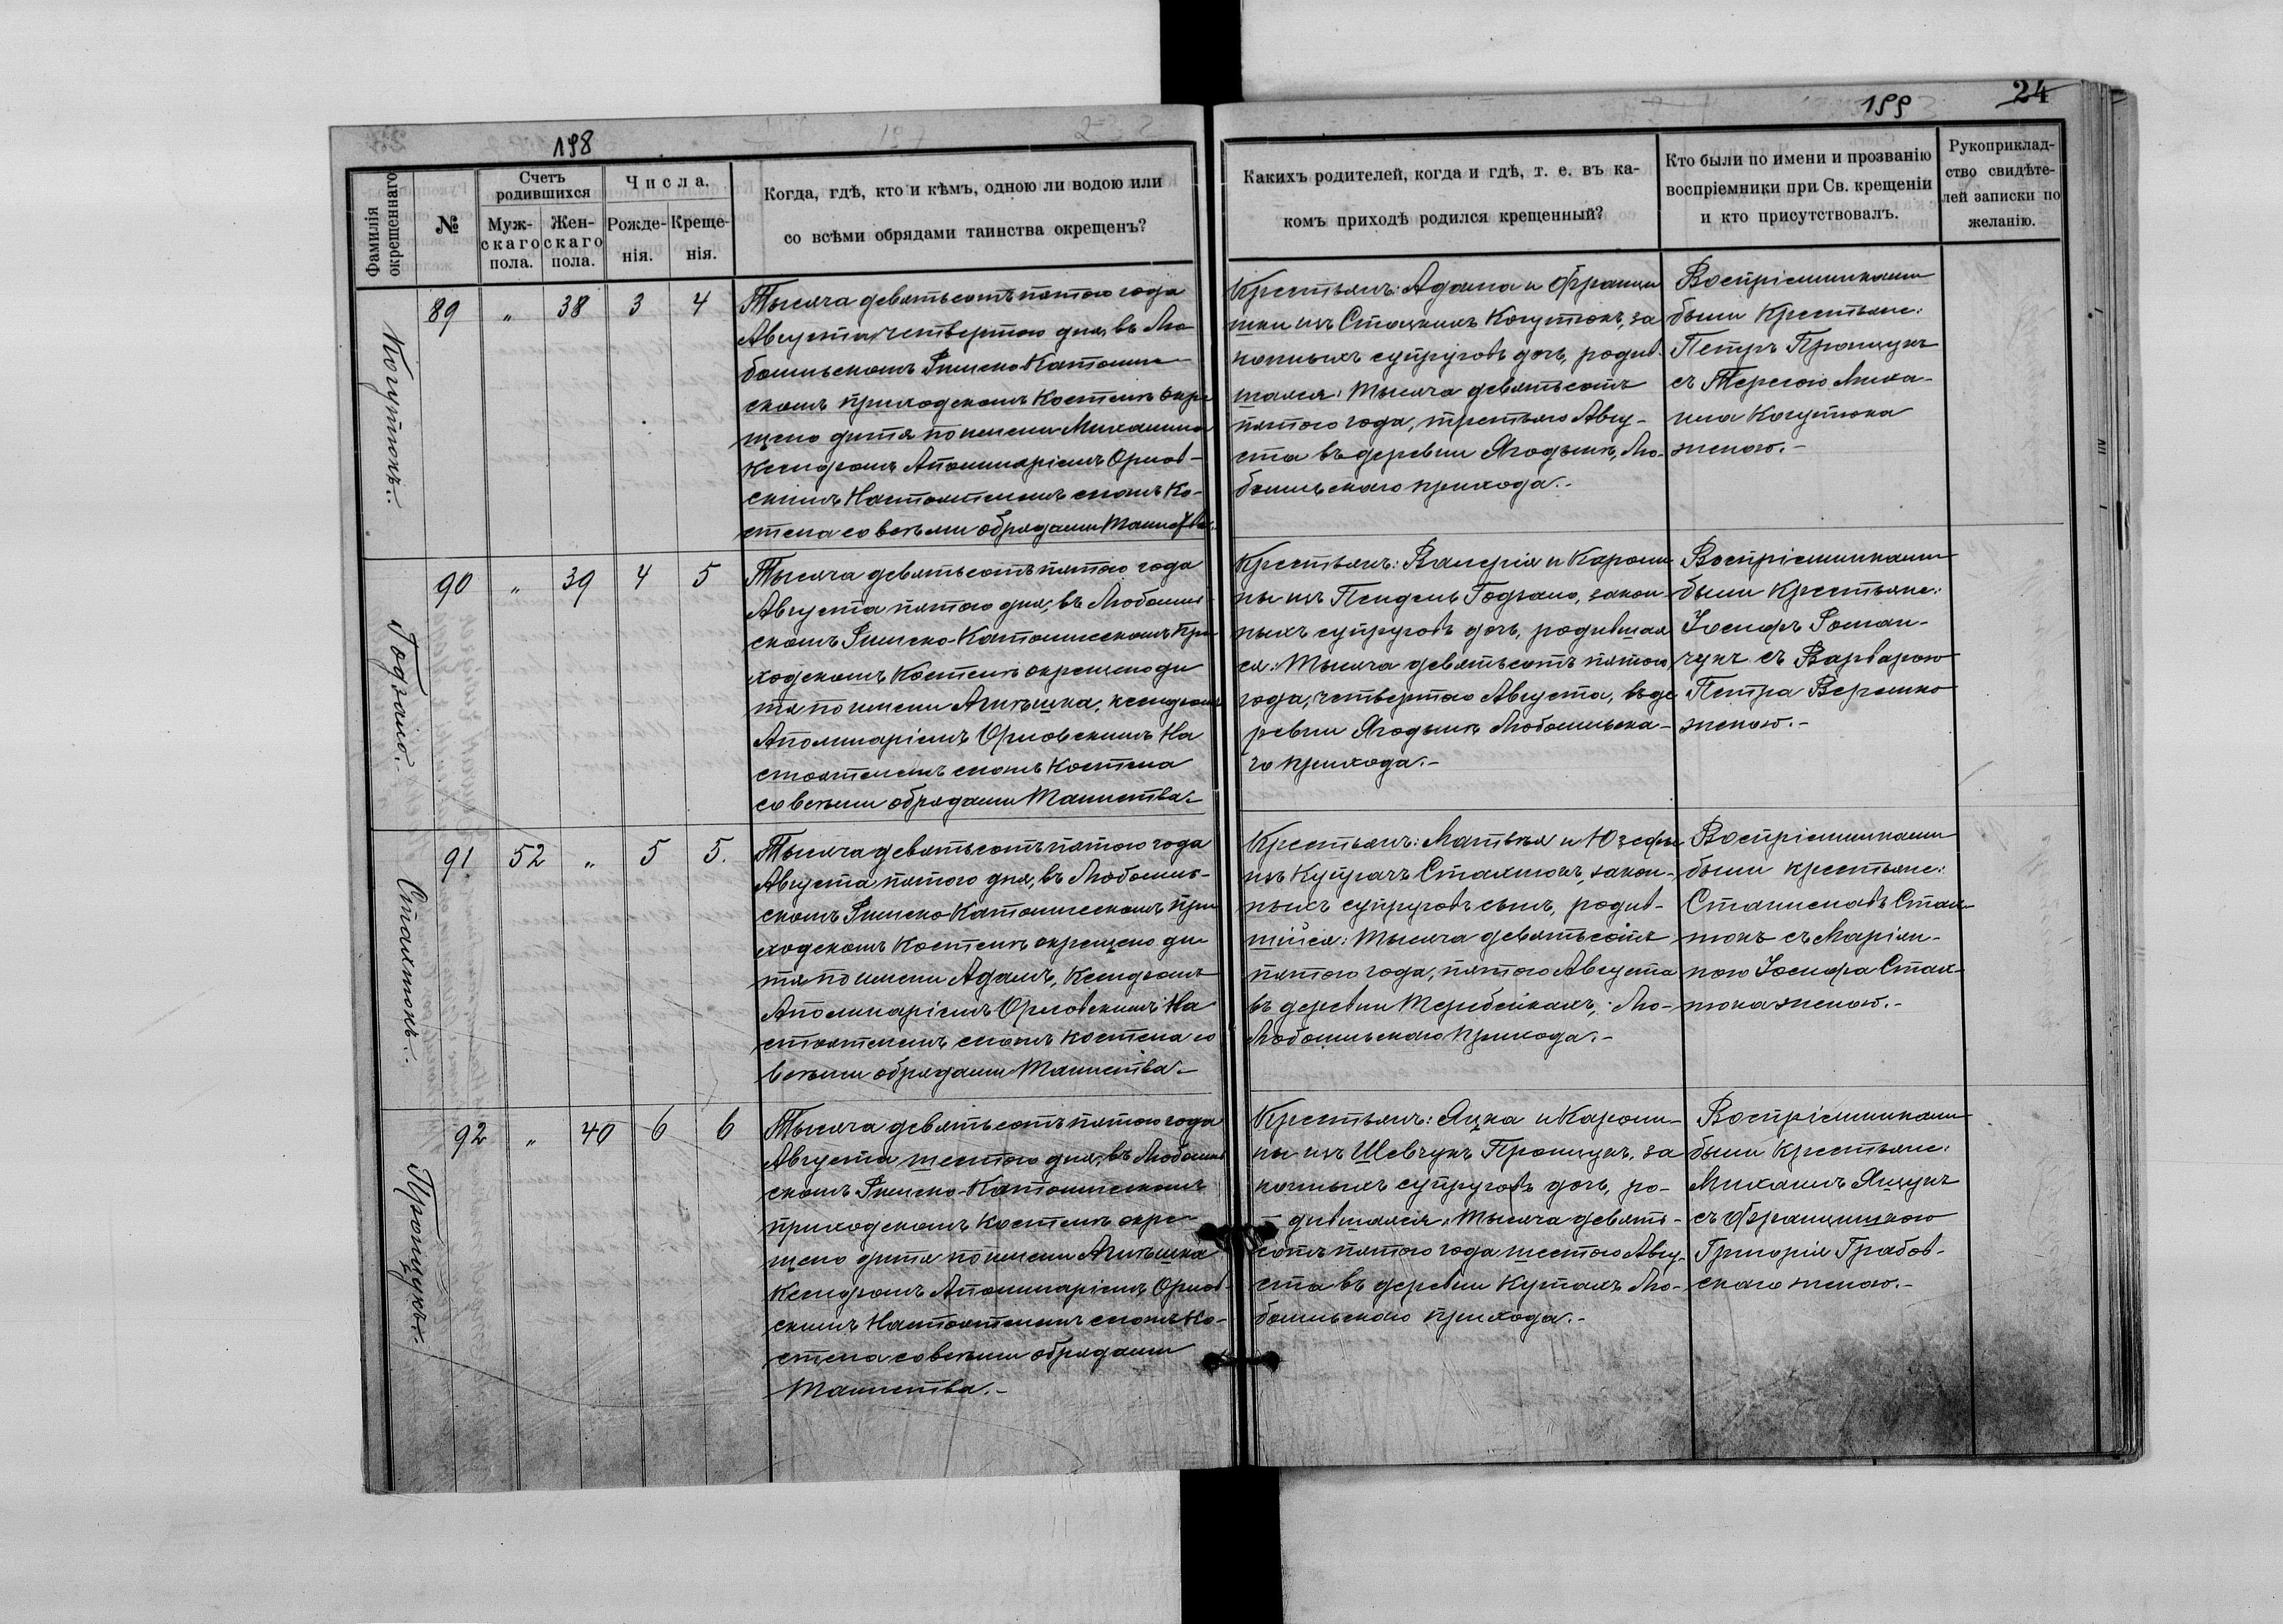 198
Фамилія окрещеннаго
№
Счетъ родившихся
Мужскаго пола.
Женскаго пола.
Числа.
Рожденія.
Крещенія.
Когда, гдѣ, кто и кѣмъ, одною ли водою или
со всѣми обрядами таинства окрещенъ?
Когутюкъ.
89 " 38 3 4
Тысяча девятьсотъ пятого года
Августа четвертого дня, въ Лю-
бомльскомъ Римско-Католиче
скомъ приходскомъ Костелѣ окре
щено дитя по имени Михалина
Ксендзомъ Аполинаріемъ Орлов-
скимъ Настоятелемъ сномъ Ко-
стела со всѣми обрядами Таинства.
Годзало.
90 " 39 4 5
Тысяча девятьсотъ пятого года
Августа пятого дня, въ Любомль-
скомъ Римско-Католическомъ При
ходскомъ Костелѣ окрещено ди
тя по имени Агнѣшка, ксендзомъ
Аполинаріемъ Орловскимъ На
стоятелемъ сномъ Костела
со всѣми обрядами Таинства.-
Стахнюкъ.
91 52 " 5 5.
Тысяча девятьсотъ пятого года
Августа пятого дня, въ Любомль-
скомъ Римско-Католическомъ При
ходскомъ Костелѣ окрещено ди
тя по имени Адамъ, Ксендзомъ
Аполинаріемъ Орловскимъ На
стоятелемъ сномъ Костела со
всѣми обрядами Таинства.-
Пронцукъ.
92 " 40 6 6
Тысяча девятьсотъ пятого года
Августа шестого дня, въ Любомль
скомъ Римско-Католическомъ
приходскомъ Костелѣ окре-
щено дитя по имени Агнѣшка
Ксендзомъ Аполинаріемъ Орлов-
скимъ Настоятелемъ сномъ Ко-
стела со всѣми обрядами
Таинства.-
199
24
Какихъ родителей, когда и гдѣ, т. е. въ ка-
комъ приходѣ родился крещенный?
Кто были по имени и прозванію
воспріемники при Св. крещеніи
и кто присутствовалъ.
Рукоприклад-
ство свидѣте-
лей записки по
желанію.
Крестьянъ: Адама и Францы
шки изъ Стоцкихъ Когутюкъ, за
конныхъ супруговъ дочь, родив-
шаяся: Тысяча девятьсотъ
пятого года, третьяго Авгу-
ста въ деревни Ягодынѣ, Лю-
бомльскаго прихода.-
Воспріемниками
были Крестьяне:
Петръ Пронцукъ
съ Терезою Миха-
ила Когутюка
женою.-
Крестьянъ: Валерія и Кароли
ны изъ Пендель Годзало, закон-
ныхъ супруговъ дочь, родившая
ся: Тысяча девятьсотъ пятого
года, четвертого Августа, въ де
ревни Ягодынѣ Любомльска-
го прихода.-
Воспріемниками
были Крестьяне:
Іосифъ Роман-
чукъ съ Варварою
Петра Веремко
женою.-
Крестьянъ: Матвѣя и Юзефы
изъ Купрачъ Стахнюкъ, закон-
ныхъ супруговъ сынъ, родив-
шійся: Тысяча девятьсотъ
пятого года, пятого Августа
въ деревни Теребейкахъ, Лю-
Любомльскаго прихода.-
Воспріемниками
были крестьяне:
Станиславъ Стах-
нюкъ съ Маріян-
ною Іосифа Стах-
нюка женою.-
Крестьянъ: Яцка и Кароли-
ны изъ Шевчукъ Пронцукъ, за
конныхъ супруговъ дочь, ро-
дившаяся: Тысяча девять-
сотъ пятого года шестого Авгу-
ста въ деревни Кутахъ Лю-
бомльскаго прихода.-
Воспріемниками
были Крестьяне:
Михаилъ Ящукъ
съ Францишкою
Григорія Грабов-
скаго женою.-